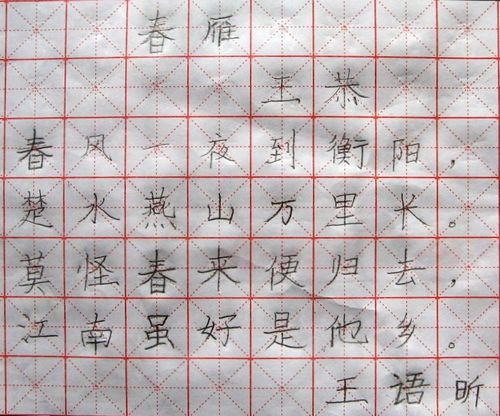 春雁
王恭
春风一夜到衡阳，
楚水燕山万里长。
莫怪春来便归去，
江南虽好是他乡。
王语昕